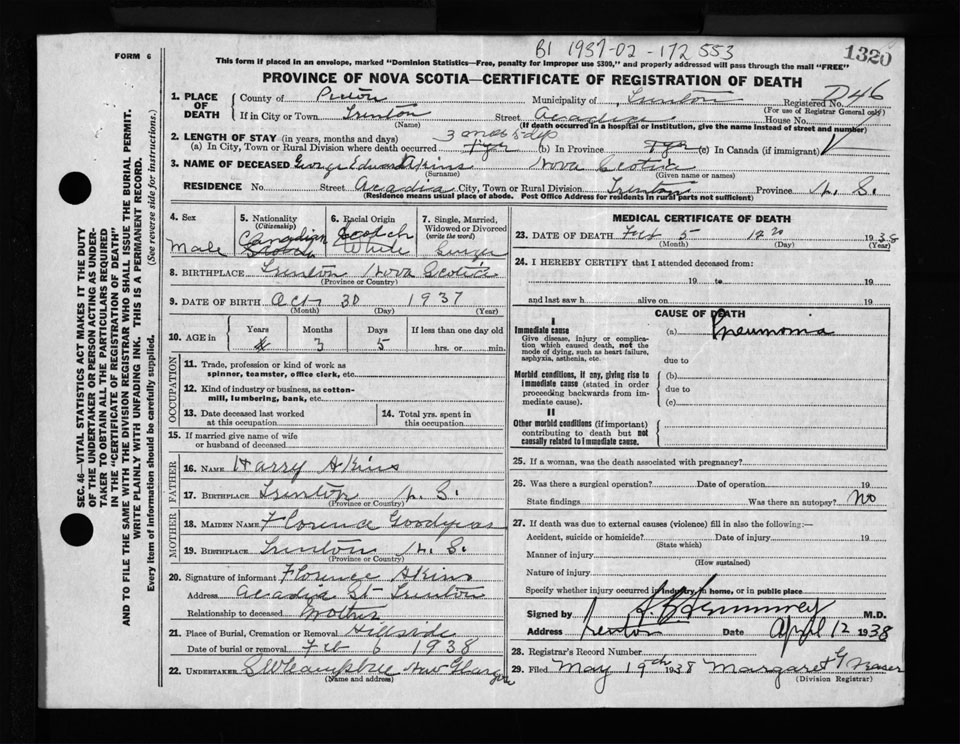 B1 1937-02-172553
1320
FORM 6
This form if placed in an envelope, marked "Dominion Statistics—Free, penalty for improper use $300," and properly addressed will pass through the mail "FREE"
PROVINCE OF NOVA SCOTIA—CERTIFICATE OF REGISTRATION OF DEATH
1. PLACE OF DEATH
County of Pictou Municipality of Trenton Registered No. D46
(For use of Registrar General only)
If in City or Town Trenton Street Acadia House No.
(Name) (If death occurred in a hospital or institution, give the name instead of street and number)
2. LENGTH OF STAY (in years, months and days) 3 mos 5 ds
(a) In City, Town or Rural Division where death occurred (b) In Province (c) In Canada (if immigrant)
3. NAME OF DECEASED George Edward Akins Nova Scotia
(Surname) (Given name or names)
RESIDENCE No. Street Acadia City, Town or Rural Division Trenton Province N. S.
(Residence means usual place of abode. Post Office Address for residents in rural parts not sufficient)
4. Sex Male
5. Nationality (Citizenship) Canadian Scotch
6. Racial Origin Scotch White
7. Single, Married, Widowed or Divorced (write the word) Single
8. BIRTHPLACE Trenton Nova Scotia
(Province or Country)
9. DATE OF BIRTH Oct 30 1937
(Month) (Day) (Year)
10. AGE in Years Months Days If less than one day old
3 5 hrs. or min.
OCCUPATION
11. Trade, profession or kind of work as spinner, teamster, office clerk, etc.
12. Kind of industry or business, as cotton-mill, lumbering, bank, etc.
13. Date deceased last worked at this occupation
14. Total yrs. spent in this occupation
15. If married give name of wife or husband of deceased
FATHER
16. NAME Harry Akins
17. BIRTHPLACE Trenton N. S.
(Province or Country)
MOTHER
18. MAIDEN NAME Florence
19. BIRTHPLACE Trenton N. S.
(Province or Country)
20. Signature of informant Florence Akins
Address Acadia St Trenton
Relationship to deceased Mother
21. Place of Burial, Cremation or Removal Hillside
Date of burial or removal Feb 6 1938
22. UNDERTAKER New Glasgow
(Name and address)
MEDICAL CERTIFICATE OF DEATH
23. DATE OF DEATH Feb 5 1938
(Month) (Day) (Year)
24. I HEREBY CERTIFY that I attended deceased from:
19 to 19
and last saw h alive on 19
CAUSE OF DEATH
I
Immediate cause (a) Pneumonia
Give disease, injury or complication which caused death, not the mode of dying, such as heart failure, asphyxia, asthenia, etc.
due to
Morbid conditions, if any, giving rise to immediate cause (stated in order proceeding backwards from immediate cause).
(b)
due to
(c)
II
Other morbid conditions (if important) contributing to death but not causally related to immediate cause.
25. If a woman, was the death associated with pregnancy?
26. Was there a surgical operation? Date of operation 19
State findings Was there an autopsy? No
27. If death was due to external causes (violence) fill in also the following:—
Accident, suicide or homicide? Date of injury 19
(State which)
Manner of injury
(How sustained)
Nature of injury
Specify whether injury occurred in industry, in home, or in public place
Signed by M.D.
Address Trenton Date April 12 1938
28. Registrar's Record Number
29. Filed May 19th 1938 Margaret G Fraser
(Division Registrar)
SEC. 46—VITAL STATISTICS ACT MAKES IT THE DUTY
OF THE UNDERTAKER OR PERSON ACTING AS UNDER-
TAKER TO OBTAIN ALL THE PARTICULARS REQUIRED
IN THE "CERTIFICATE OF REGISTRATION OF DEATH"
AND TO FILE THE SAME WITH THE DIVISION REGISTRAR WHO SHALL ISSUE THE BURIAL PERMIT.
WRITE PLAINLY WITH UNFADING INK. THIS IS A PERMANENT RECORD.
Every item of information should be carefully supplied. (See reverse side for instructions.)